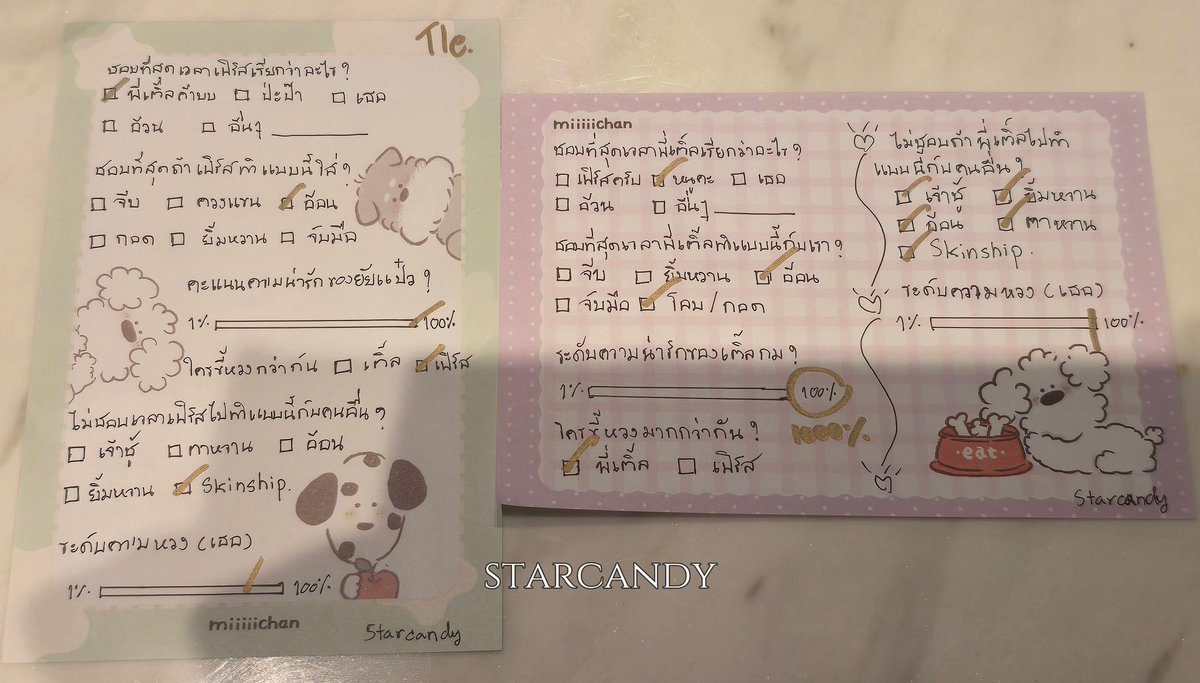 Tle.
ชอบที่สุดเวลาเฟิร์สเรียกว่าอะไร ?
พี่เติ้ลค้าบบ ป่ะป๊า เธอ
อ้วน อื่นๆ
ชอบที่สุดถ้าเฟิร์สทำแบบนี้ใส่ ?
จีบ ควงแขน อ้อน
กอด ยิ้มหวาน จับมือ
คะแนนความน่ารักของยัยแป๋ว ?
1% 100%
ใครขี้หวงกว่ากัน เติ้ล เฟิร์ส
ไม่ชอบเวลาเฟิร์สไปทำแบบนี้กับคนอื่น ?
เจ้าชู้ ตาหวาน อ้อน
ยิ้มหวาน Skinship.
ระดับความหวง (เธอ)
1% 100%
miiiiichan
Starcandy
miiiiichan
ชอบที่สุดเวลาพี่เติ้ลเรียกว่าอะไร ?
เฟิร์สครับ หนูคะ เธอ
อ้วน อื่นๆ
ชอบที่สุดเวลาพี่เติ้ลทำแบบนี้กับเรา ?
จีบ ยิ้มหวาน อ้อน
จับมือ โอบ / กอด
ระดับความน่ารักของเติ้ลกม ?
1% 100%
1000%
ใครขี้หวงมากกว่ากัน ?
พี่เติ้ล เฟิร์ส
ไม่ชอบถ้าพี่เติ้ลไปทำ
แบบนี้กับคนอื่น ?
เจ้าชู้ ยิ้มหวาน
อ้อน ตาหวาน
Skinship.
ระดับความหวง (เธอ)
1% 100%
eat
Starcandy
STARCANDY